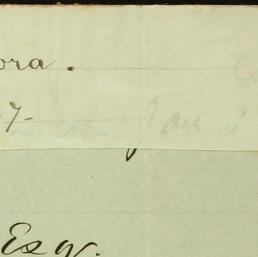 ora.
7- Jan 3
Esq.